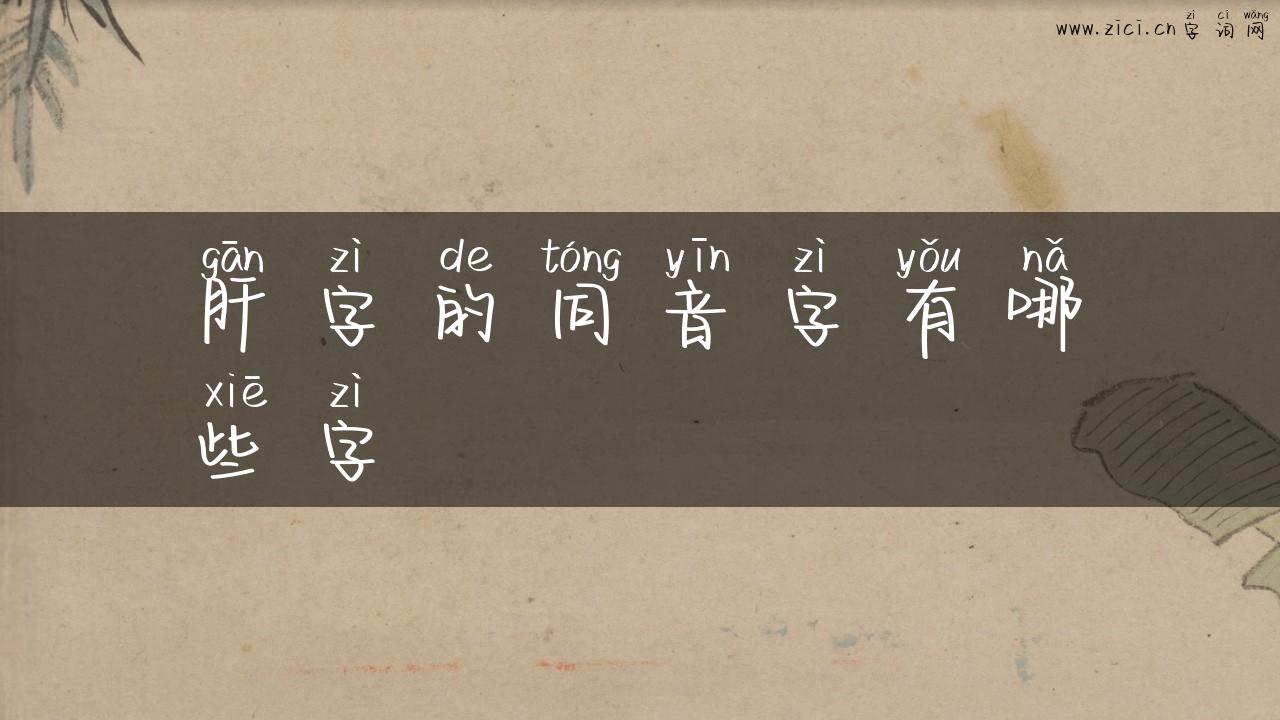 zì cí wǎng
www.zici.cn 字 词 网
gān zì de tóng yīn zì yǒu nǎ
肝 字 的 同 音 字 有 哪
xiē zì
些 字